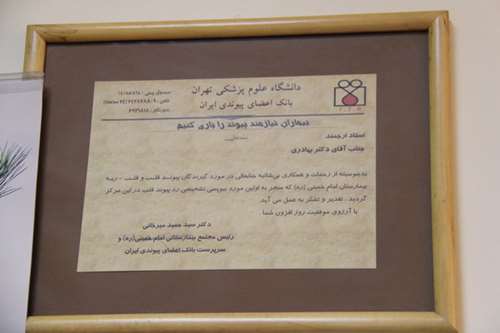 دانشگاه علوم پزشکی تهران
بانک اعضای پیوندی ایران
بیماران نیازمند پیوند را یاری کنیم
استاد ارجمند
جناب آقای دکتر بهادری
بدینوسیله از زحمات و همکاری بی‌شائبه جنابعالی در مورد گیرندگان پیوند قلب و قلب - ریه
بیمارستان امام خمینی (ره) که منجر به اولین مورد بیوپسی تشخیصی رد پیوند قلب در این مرکز
گردید ، تقدیر و تشکر به عمل می آید
با آرزوی موفقیت روز افزون شما
دکتر سید حمید میرخانی
رئیس مجتمع بیمارستانی امام خمینی(ره) و
سرپرست بانک اعضای پیوندی ایران